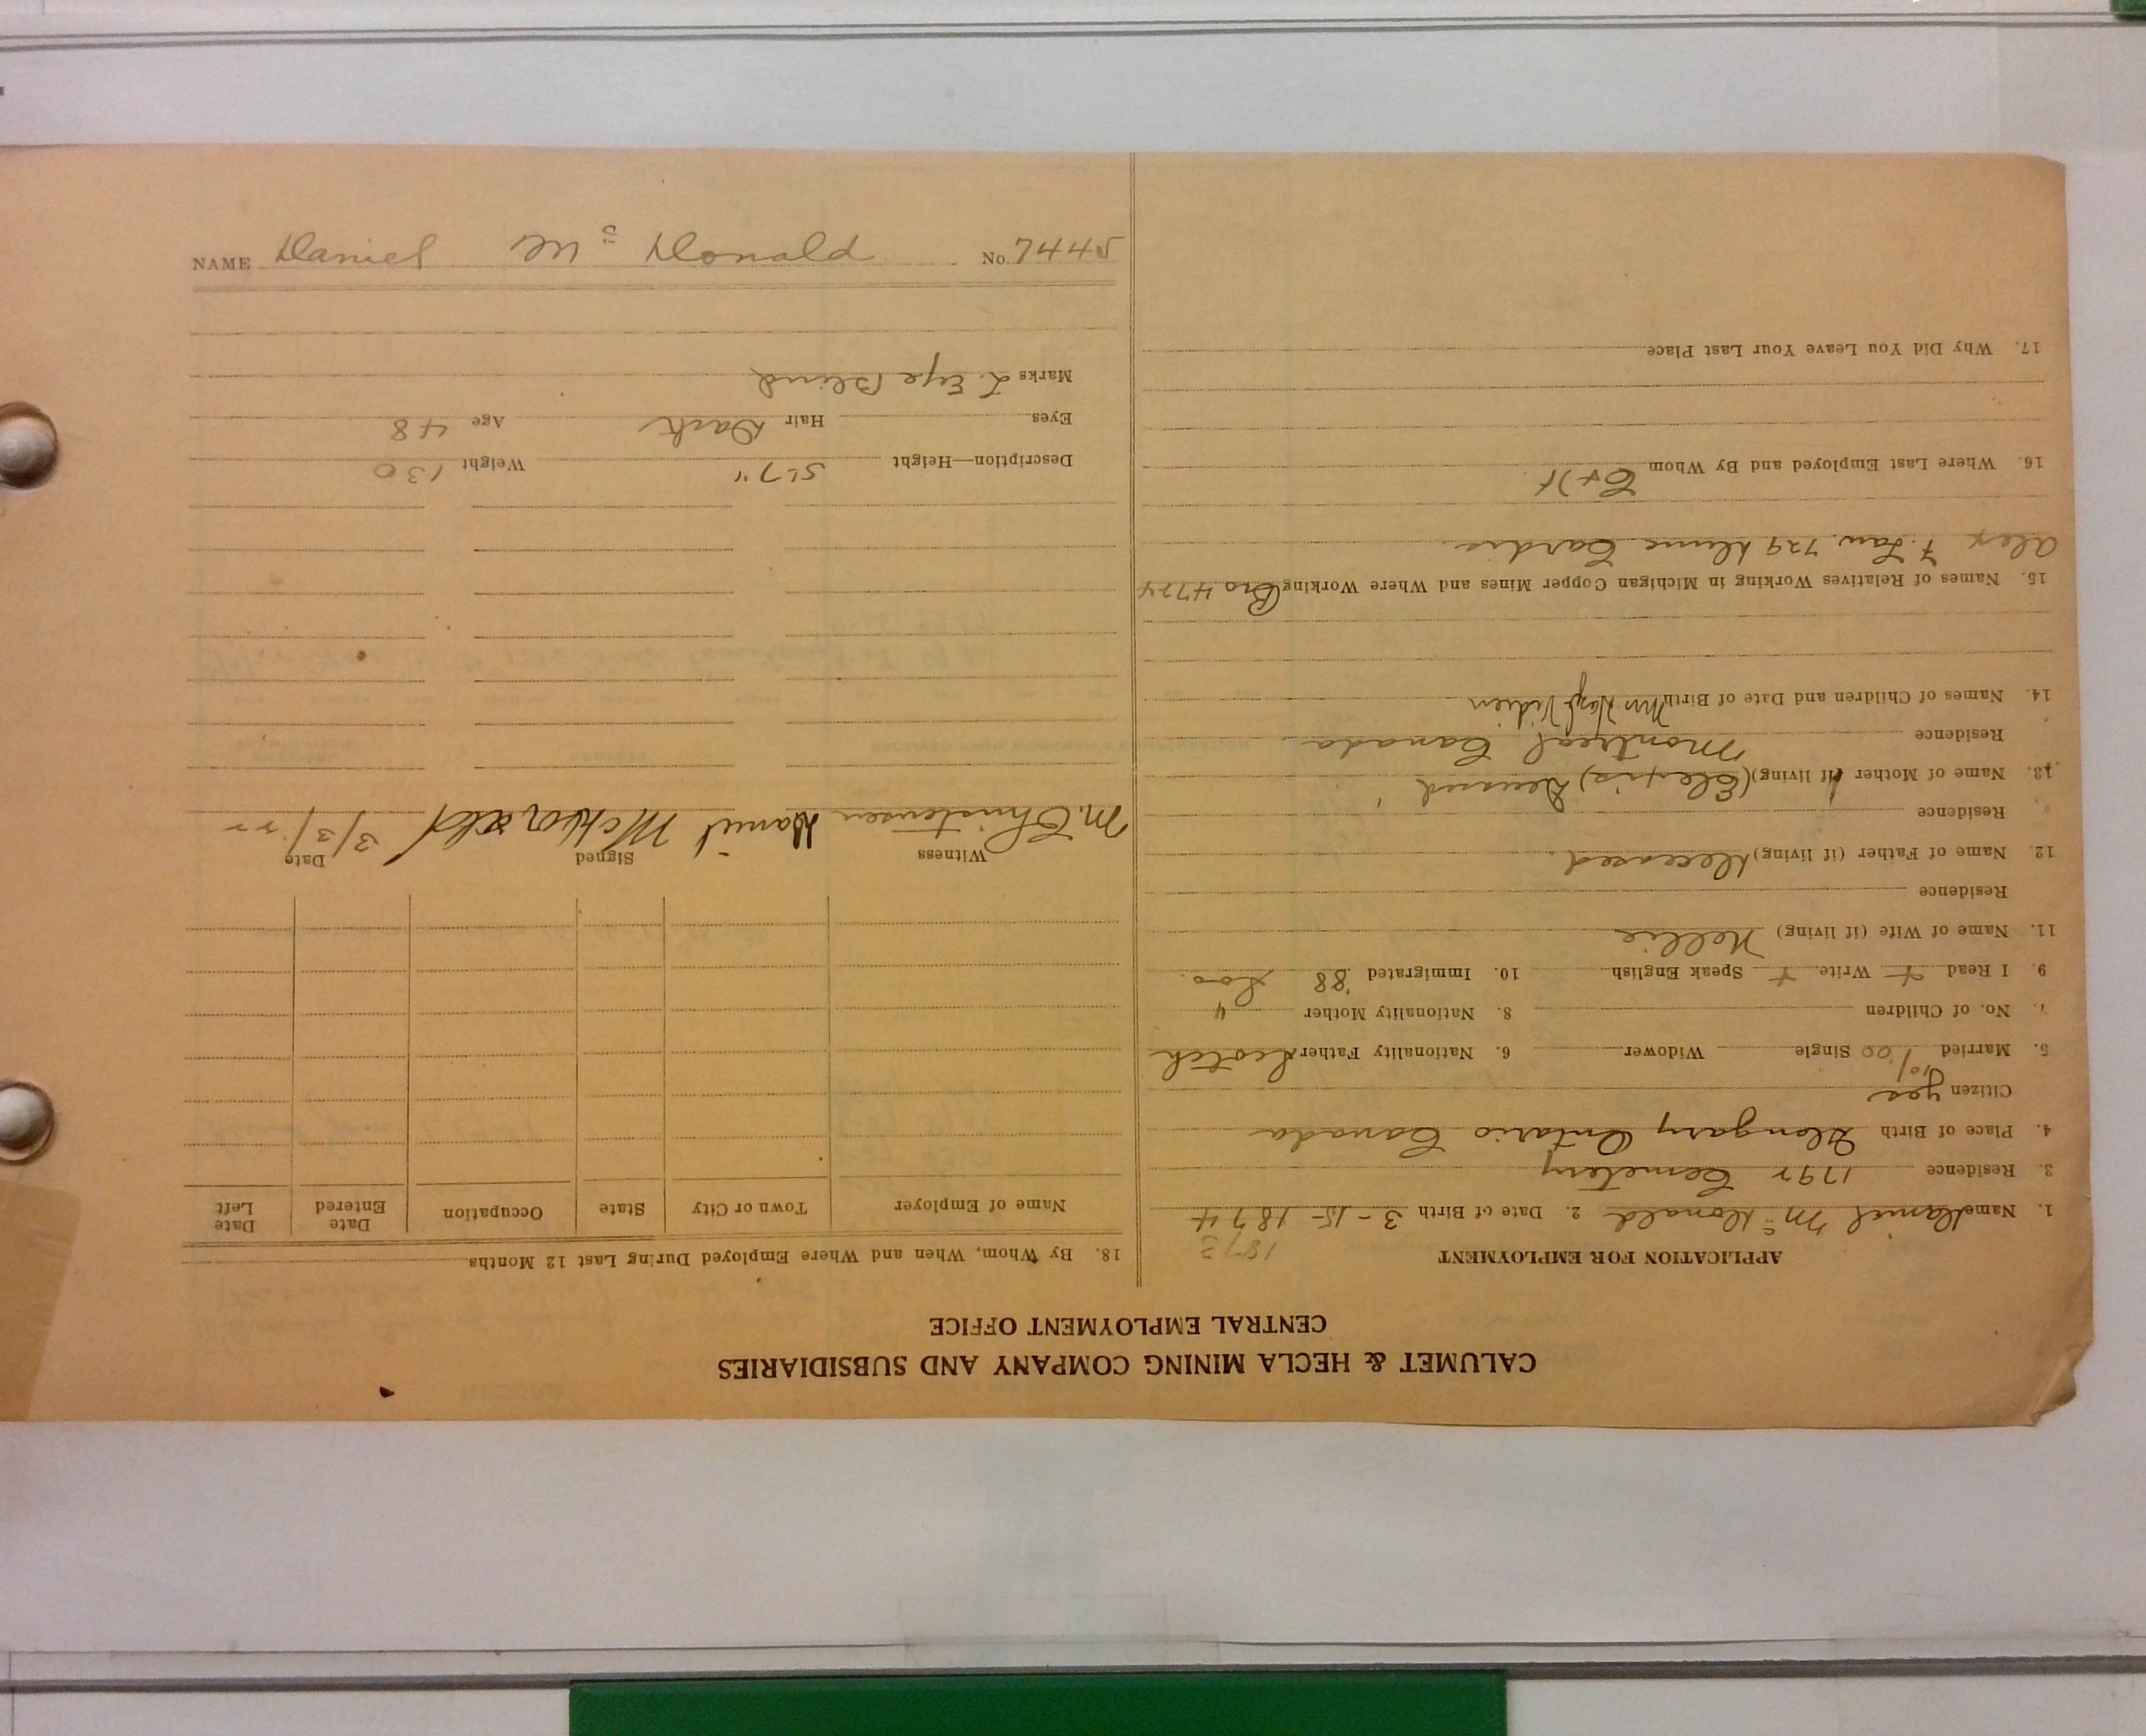 CALUMET & HECLA MINING COMPANY AND SUBSIDIARIES
CENTRAL EMPLOYMENT OFFICE
APPLICATION FOR EMPLOYMENT
1873
1. Name Daniel Mc Donald 2. Date of Birth 3-15-1874
3. Residence 1792 Cemetery
4. Place of Birth Glengary Ontario Canada
Citizen yes
5. Married Single Widower 6. Nationality Father Scotch
7. No. of Children 8. Nationality Mother "
9. I Read + Write + Speak English 10. Immigrated '88 Soo
11. Name of Wife (if living) Nellie
Residence
12. Name of Father (if living) Deceased
Residence
13. Name of Mother (if living) Deceased
Residence Montreal Canada
14. Names of Children and Date of Birth Mrs
15. Names of Relatives Working in Michigan Copper Mines and Where Working Bro 4724
Alex F. Law. 729
16. Where Last Employed and By Whom C+H
17. Why Did You Leave Your Last Place
18. By Whom, When and Where Employed During Last 12 Months
Name of Employer Town or City State Occupation Date Entered Date Left
Witness Signed Date
M. Christensen Daniel McDonald 3/3/22
Description—Height 5'7" Weight 130
Eyes Hair Dark Age 48
Marks L. Eye Blind
NAME Daniel Mc Donald No. 7445